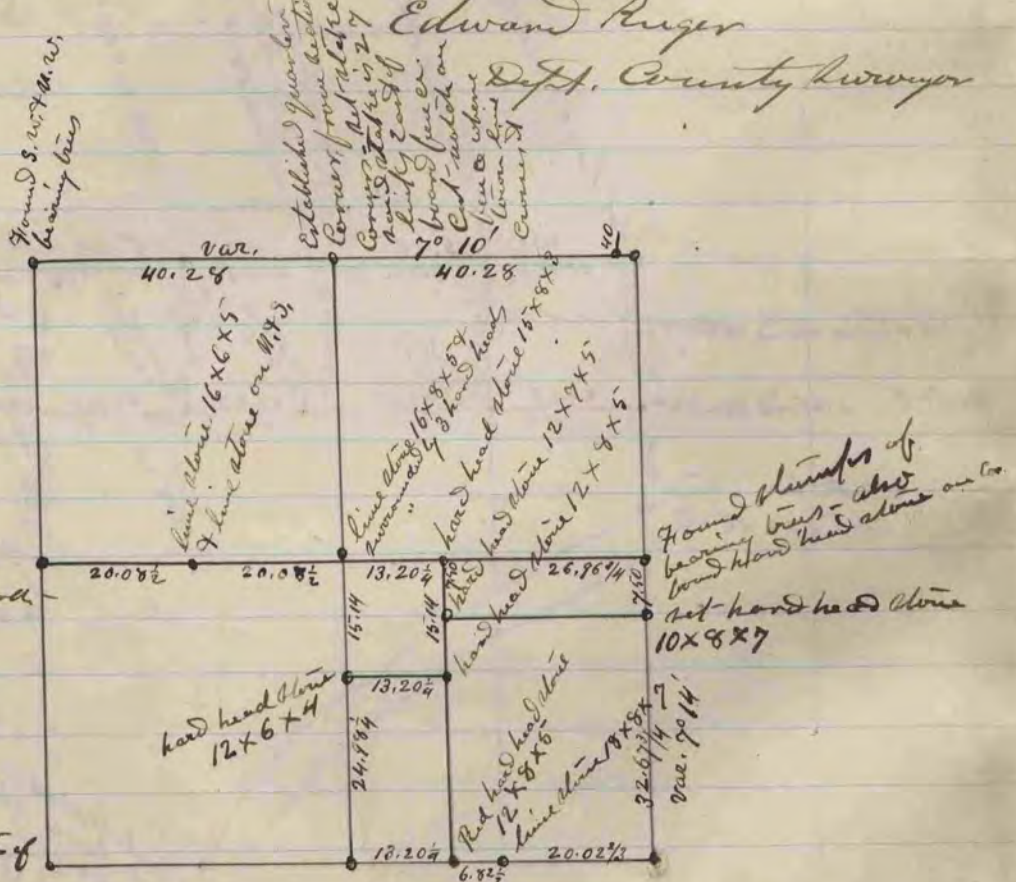 Edward Ruger
Dept. County Surveyor
Found S.W. & N.W.
bearing trees
Established quarter
Corner from section
Corners = set stake
said stake is 27
links East of
board fence
Cut notch on
fence where
town line
crosses it
var. 7° 10'
40.28
40.28
40
lime stone 16x6x5
& lime stone on N. & S.
lime stone 16x8x5 &
surrounded by 3 hard heads
hard head stone 15x8x3
hard head stone 12x7x5
hard head stone 12x8x5
Found stumps of
bearing trees - also
found hard head stone on Cor.
20.08½
20.08½
13.20¼
7.50
26.96¾
7.50
set hard head stone
10x8x7
15.14
15.14
13.20¼
hard head stone
12x6x4
24.98¾
Red hard head stone
12x8x5
lime stone 18x8x7
32.67¾
var. 7° 14'
of
13.20¼
6.82½
20.02⅔